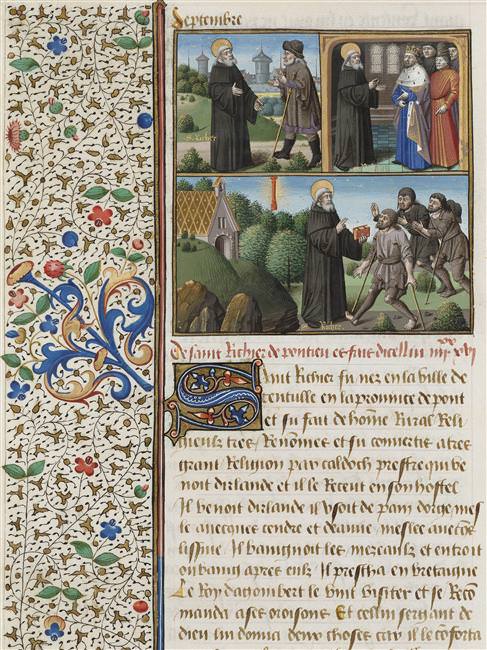 Septembre
S. Richer
Richer
De saint Richier de pontieu et fait dicellui
Saint Richier fu nez en la ville de
centulle en la prouince de pont
et fu fait de home Rural Reli
gieulx tres Renomes et fu conuertis a tres
grant Religion par caldoch prestre qui ve
noit dirlande et il le Recut en son hostel
Il venoit dirlande il vsoit de pain dorge mes
le auecques cendre et deaue meslee auec
lissiue Il baingnoit les mezeaulx et entroit
ou baing apres eulx Il prescha en bretaigne
Le Roy dagombert le vint visiter et se Reco
manda a ses oroisons Et cellui sergant de
dieu lui donna deux choses car il le conforta